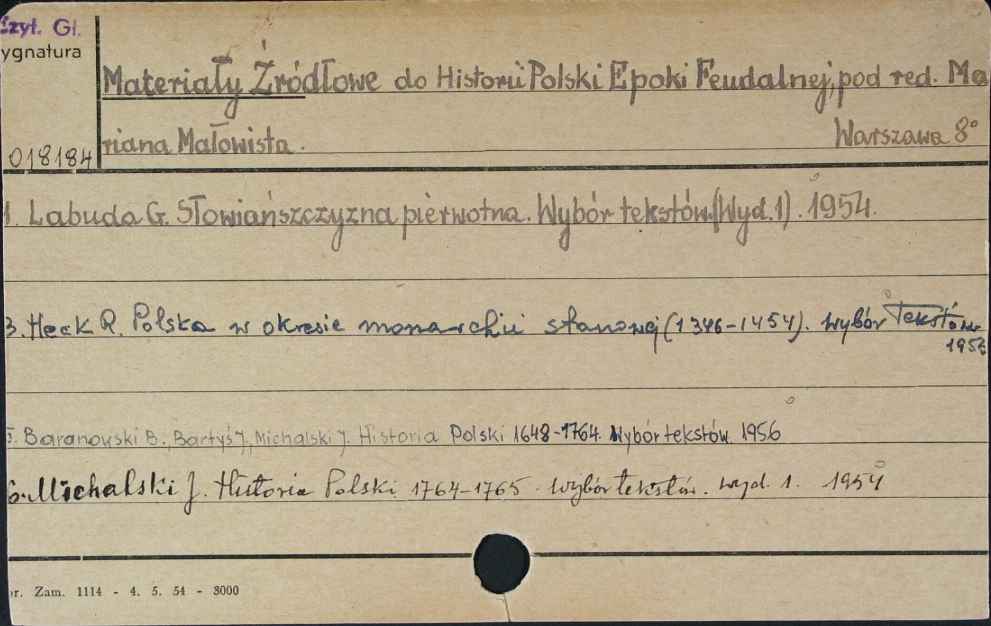 Czyt. Gł.
ygnatura
Materiały Źródłowe do Historii Polski Epoki Feudalnej, pod red. Ma
riana Małowista. Warszawa 8°
018184
1. Labuda G. Słowiańszczyzna pierwotna. Wybór tekstów. (Wyd. 1). 1954.
3. Heck R. Polska w okresie monarchii stanowej (1346-1454). Wybór Tekstów
5. Baranowski B., Bartyś J., Michalski J. Historia Polski 1648-1764. Wybór tekstów. 1956
6. Michalski J. Historia Polski 1764-1765. Wybór tekstów. wyd. 1. 1954
r. Zam. 1114 - 4. 5. 54 - 3000